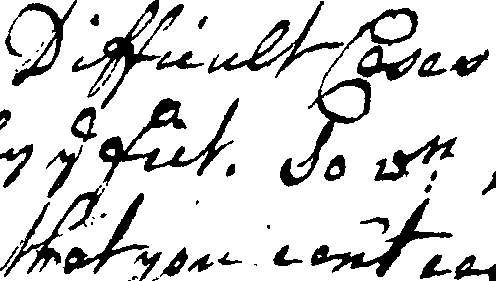 Difficult Cases
by yᵉ feet. So wⁿ,
that you can't